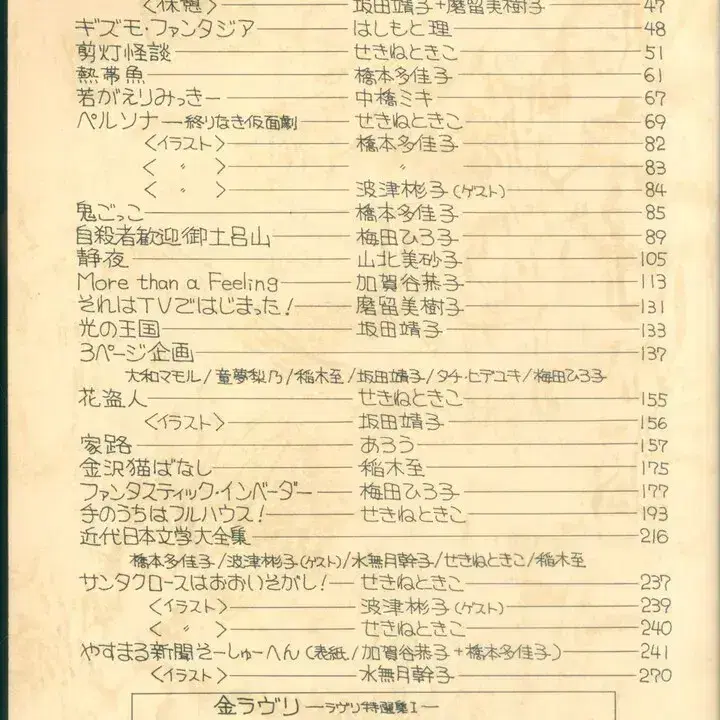 〈休憩〉 坂田靖子+磨留美樹子 47
ギズモ・ファンタジア はしもと理 48
剪灯怪談 せきねときこ 51
熱帯魚 橋本多佳子 61
若がえりみっきー 中橋ミキ 67
ペルソナ―終りなき仮面劇 せきねときこ 69
〈イラスト〉 橋本多佳子 82
〈 〃 〉 〃 83
〈 〃 〉 波津彬子(ゲスト) 84
鬼ごっこ 橋本多佳子 85
自殺者歓迎御土呂山 梅田ひろ子 89
静夜 山北美砂子 105
More than a Feeling 加賀谷恭子 113
それはTVではじまった! 磨留美樹子 131
光の王国 坂田靖子 133
3ページ企画 137
大和マモル/童夢梨乃/稲木至/坂田靖子/タチ・ヒデユキ/梅田ひろ子
花盗人 せきねときこ 155
〈イラスト〉 坂田靖子 156
家路 あろう 157
金沢猫ばなし 稲木至 175
ファンタスティック・インベーダー 梅田ひろ子 177
手のうちはフルハウス! せきねときこ 193
近代日本文学大全集 216
橋本多佳子/波津彬子(ゲスト)/水無月幹子/せきねときこ/稲木至
サンタクロースはおおいそがし! せきねときこ 237
〈イラスト〉 波津彬子(ゲスト) 239
〈 〃 〉 せきねときこ 240
やすまる新聞そーしゅーへん(表紙/加賀谷恭子+橋本多佳子) 241
〈イラスト〉 水無月幹子 270
金ラヴリ―ラヴリ特選集I―